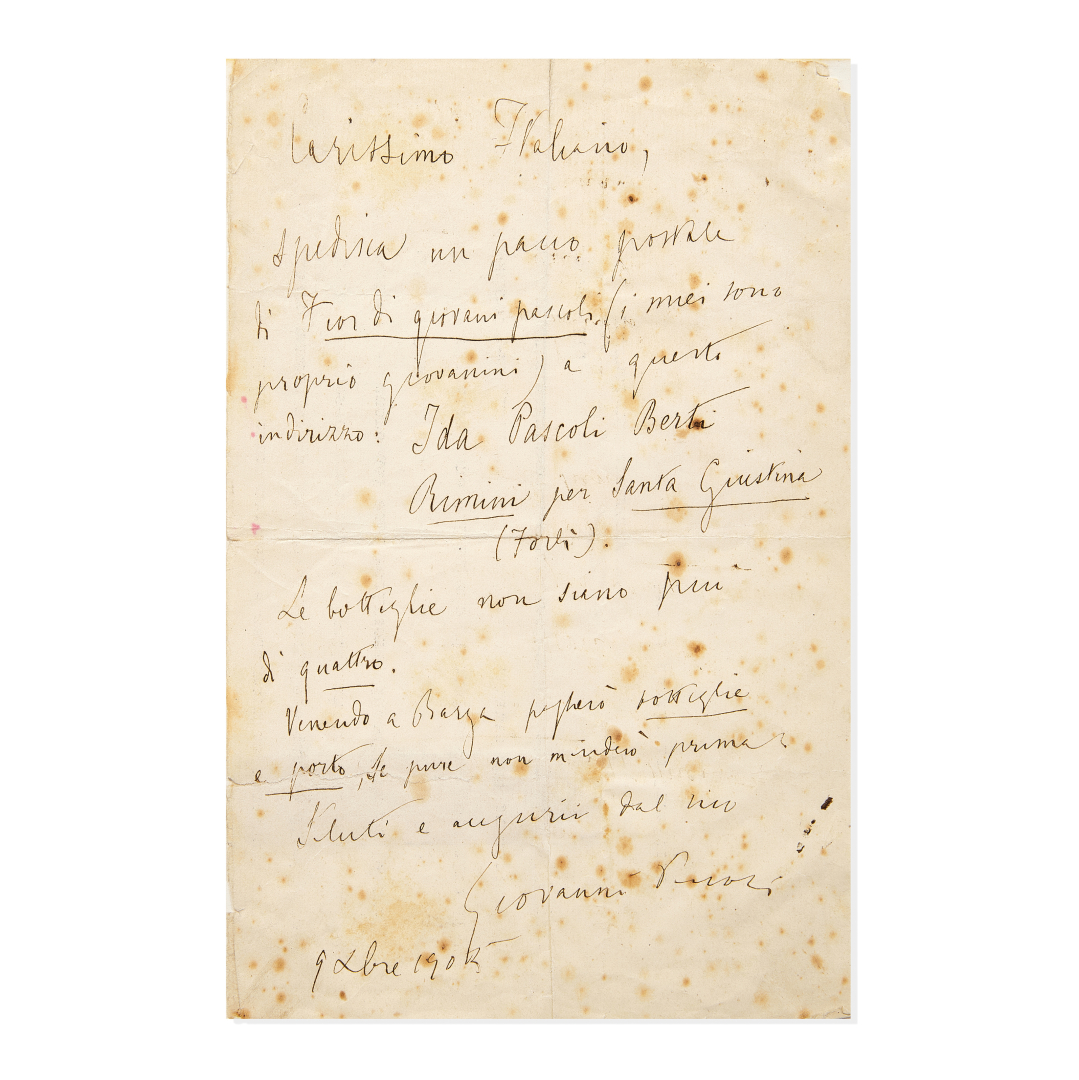 Carissimo Italiano,
Spedisca un pacco postale
di Fior di giovani pascoli (i miei sono
proprio giovanini) a questo
indirizzo: Ida Pascoli Berti
Rimini per Santa Giustina
(Forlì).
Le bottiglie non siano più
di quattro.
Venendo a Barga pagherò bottiglie
e porto, se pure non manderò prima
Saluti e augurii dal suo
Giovanni Pascoli
9 Xbre 190